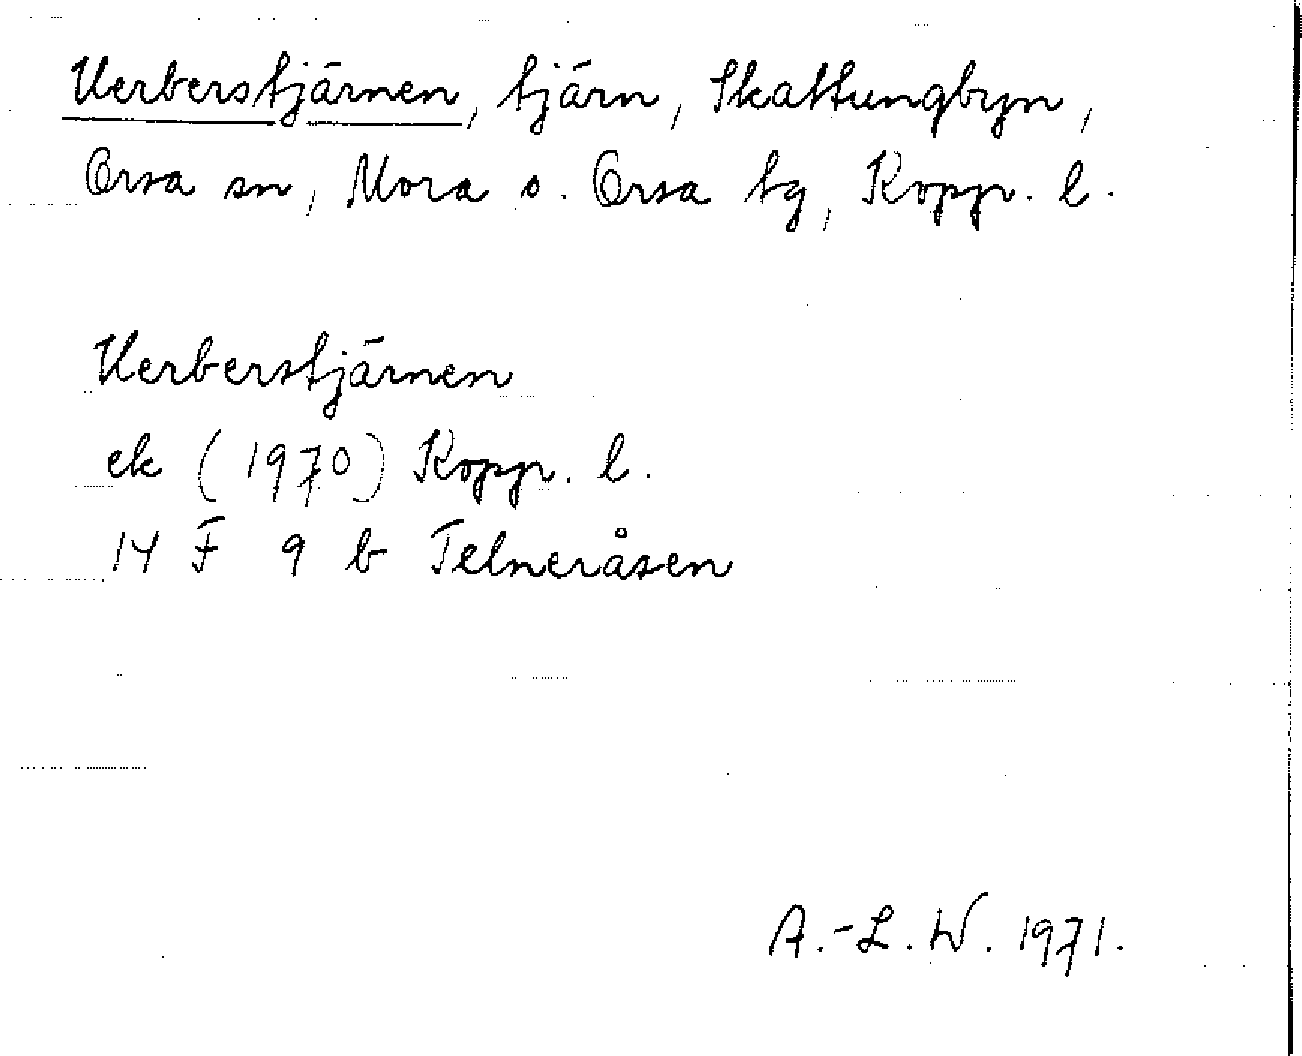 Uerberstjärnen, tjärn, Skattungbyn,
Orsa sn, Mora o. Orsa tg, Kopp. l.
Uerberstjärnen
ek (1970) Kopp. l.
14 F 9 b Telneråsen
A.-L. W. 1971.